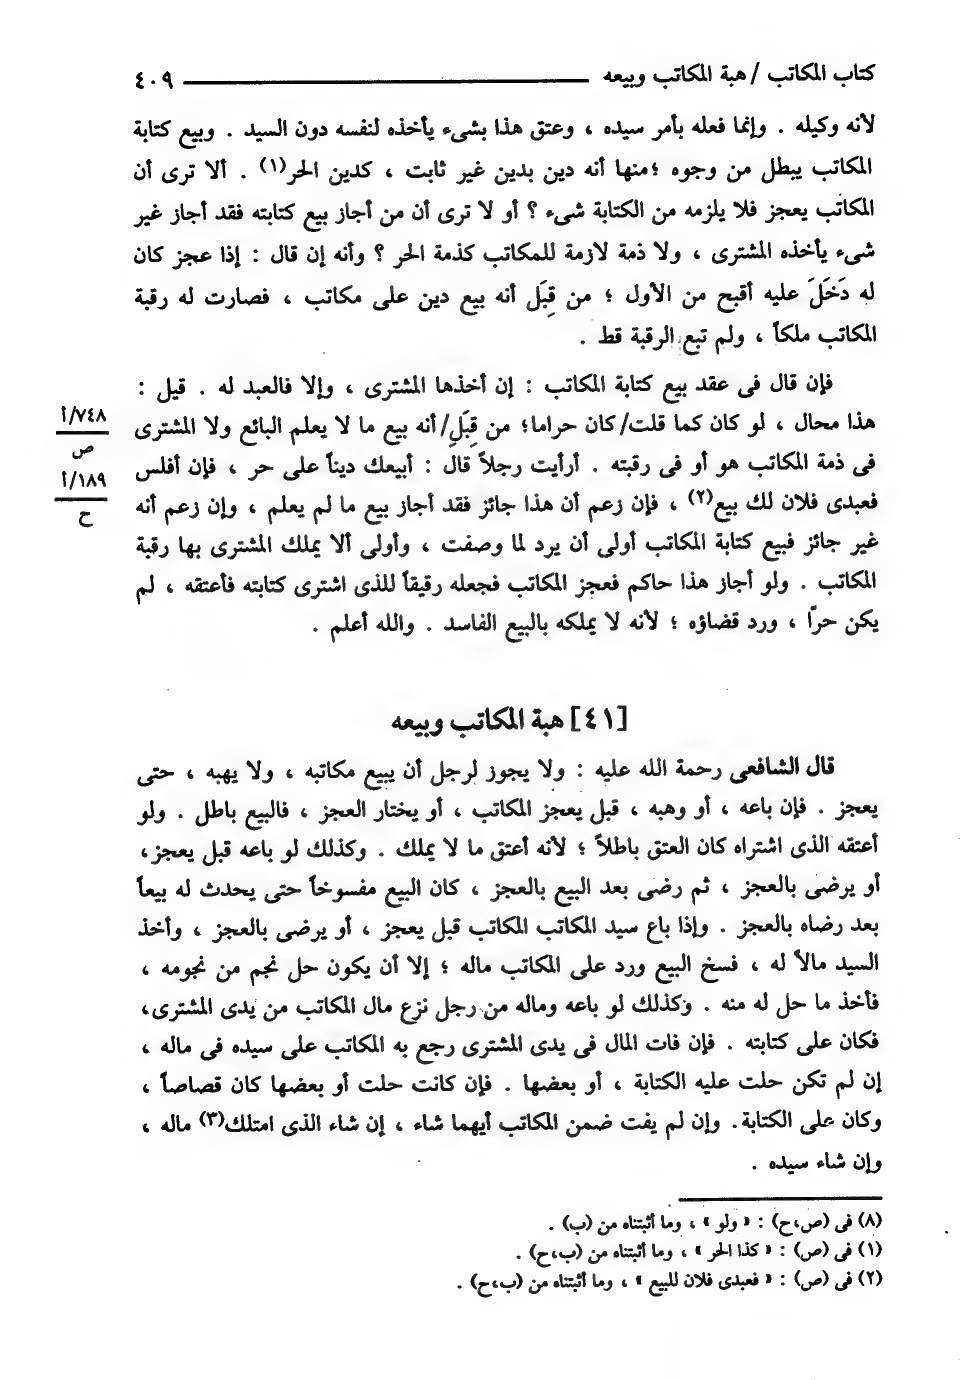 كتاب المكاتب / هبة المكاتب وبيعه ــــــــــــ ٤٠٩
لأنه وكيله . وإنما فعله بأمر سيده ، وعتق هذا بشىء يأخذه لنفسه دون السيد . وبيع كتابة
المكاتب يبطل من وجوه ؛منها أنه دين بدين غير ثابت ، كدين الحر(١) . ألا ترى أن
المكاتب يعجز فلا يلزمه من الكتابة شىء ؟ أو لا ترى أن من أجاز بيع كتابته فقد أجاز غير
شىء يأخذه المشترى ، ولا ذمة لازمة للمكاتب كذمة الحر ؟ وأنه إن قال : إذا عجز كان
له دَخَلَ عليه أقبح من الأول ؛ من قِبَل أنه بيع دين على مكاتب ، فصارت له رقبة
المكاتب ملكاً ، ولم تبع الرقبة قط .
فإن قال فى عقد بيع كتابة المكاتب : إن أخذها المشترى ، وإلا فالعبد له . قيل :
هذا محال ، لو كان كما قلت/ كان حراما؛ من قِبَلِ/ أنه بيع ما لا يعلم البائع ولا المشترى
فى ذمة المكاتب هو أو فى رقبته . أرأيت رجلاً قال : أبيعك ديناً على حر ، فإن أفلس
فعبدى فلان لك بيع(٢) ، فإن زعم أن هذا جائز فقد أجاز بيع ما لم يعلم ، وإن زعم أنه
غير جائز فبيع كتابة المكاتب أولى أن يرد لما وصفت ، وأولى ألا يملك المشترى بها رقبة
المكاتب . ولو أجاز هذا حاكم فعجز المكاتب فجعله رقيقاً للذى اشترى كتابته فأعتقه ، لم
يكن حراً ، ورد قضاؤه ؛ لأنه لا يملكه بالبيع الفاسد . والله أعلم .
٧٤٨/أ
ص
١٨٩/أ
ح
[٤١] هبة المكاتب وبيعه
قال الشافعى رحمة الله عليه : ولا يجوز لرجل أن يبيع مكاتبه ، ولا يهبه ، حتى
يعجز . فإن باعه ، أو وهبه ، قبل يعجز المكاتب ، أو يختار العجز ، فالبيع باطل . ولو
أعتقه الذى اشتراه كان العتق باطلاً ؛ لأنه أعتق ما لا يملك . وكذلك لو باعه قبل يعجز،
أو يرضى بالعجز ، ثم رضى بعد البيع بالعجز ، كان البيع مفسوخاً حتى يحدث له بيعاً
بعد رضاه بالعجز . وإذا باع سيد المكاتب المكاتب قبل يعجز ، أو يرضى بالعجز ، وأخذ
السيد مالاً له ، فسخ البيع ورد على المكاتب ماله ؛ إلا أن يكون حل نجم من نجومه ،
فأخذ ما حل له منه . وكذلك لو باعه وماله من رجل نزع مال المكاتب من يدى المشترى،
فكان على كتابته . فإن فات المال فى يدى المشترى رجع به المكاتب على سيده فى ماله ،
إن لم تكن حلت عليه الكتابة ، أو بعضها . فإن كانت حلت أو بعضها كان قصاصاً ،
وكان على الكتابة. وإن لم يفت ضمن المكاتب أيهما شاء ، إن شاء الذى امتلك(٣) ماله ،
وإن شاء سيده .
(٨) فى (ص،ح) : « ولو » ، وما أثبتناه من (ب) .
(١) فى (ص) : « كذا الحر » ، وما أثبتناه من (ب،ح) .
(٢) فى (ص) : « فعبدى فلان للبيع » ، وما أثبتناه من (ب،ح) .